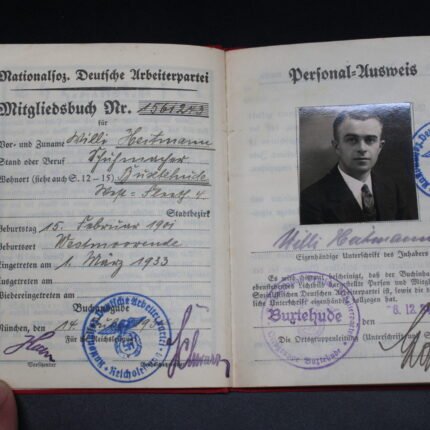 Nationalsoz. Deutsche Arbeiterpartei
Mitgliedsbuch Nr. 1561243
für
Vor- und Zuname Willi Heitmann
Stand oder Beruf Schuhmacher
Wohnort (siehe auch S. 12-15) Buxtehude
Stadtbezirk
Geburtstag 15. Februar 1901
Geburtsort Westmoorende
Eingetreten am 1. März 1933
Ausgetreten am
Wiedereingetreten am
Buchausgabe
München, den 14
Für die Reichsleitung
Vorsitzender
Nationalsozialistische Deutsche Arbeiterpartei
Reichsleitung
Personal-Ausweis
Willi Heitmann
Eigenhändige Unterschrift des Inhabers
Es wird bescheinigt, daß der Buchinhaber
Lichtbild dargestellte Person und Mitglied
Deutschen Arbeiterpartei ist, sowie die
Unterschrift eigenhändig vollzogen hat.
Buxtehude
8. 12
Die Ortsgruppenleitung (Unterschrift
Ortsgruppe Buxtehude